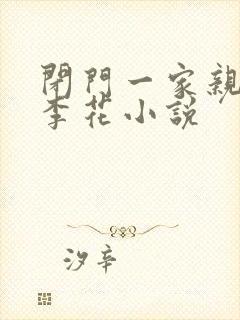 閉門一家親
李花小說
汐辛